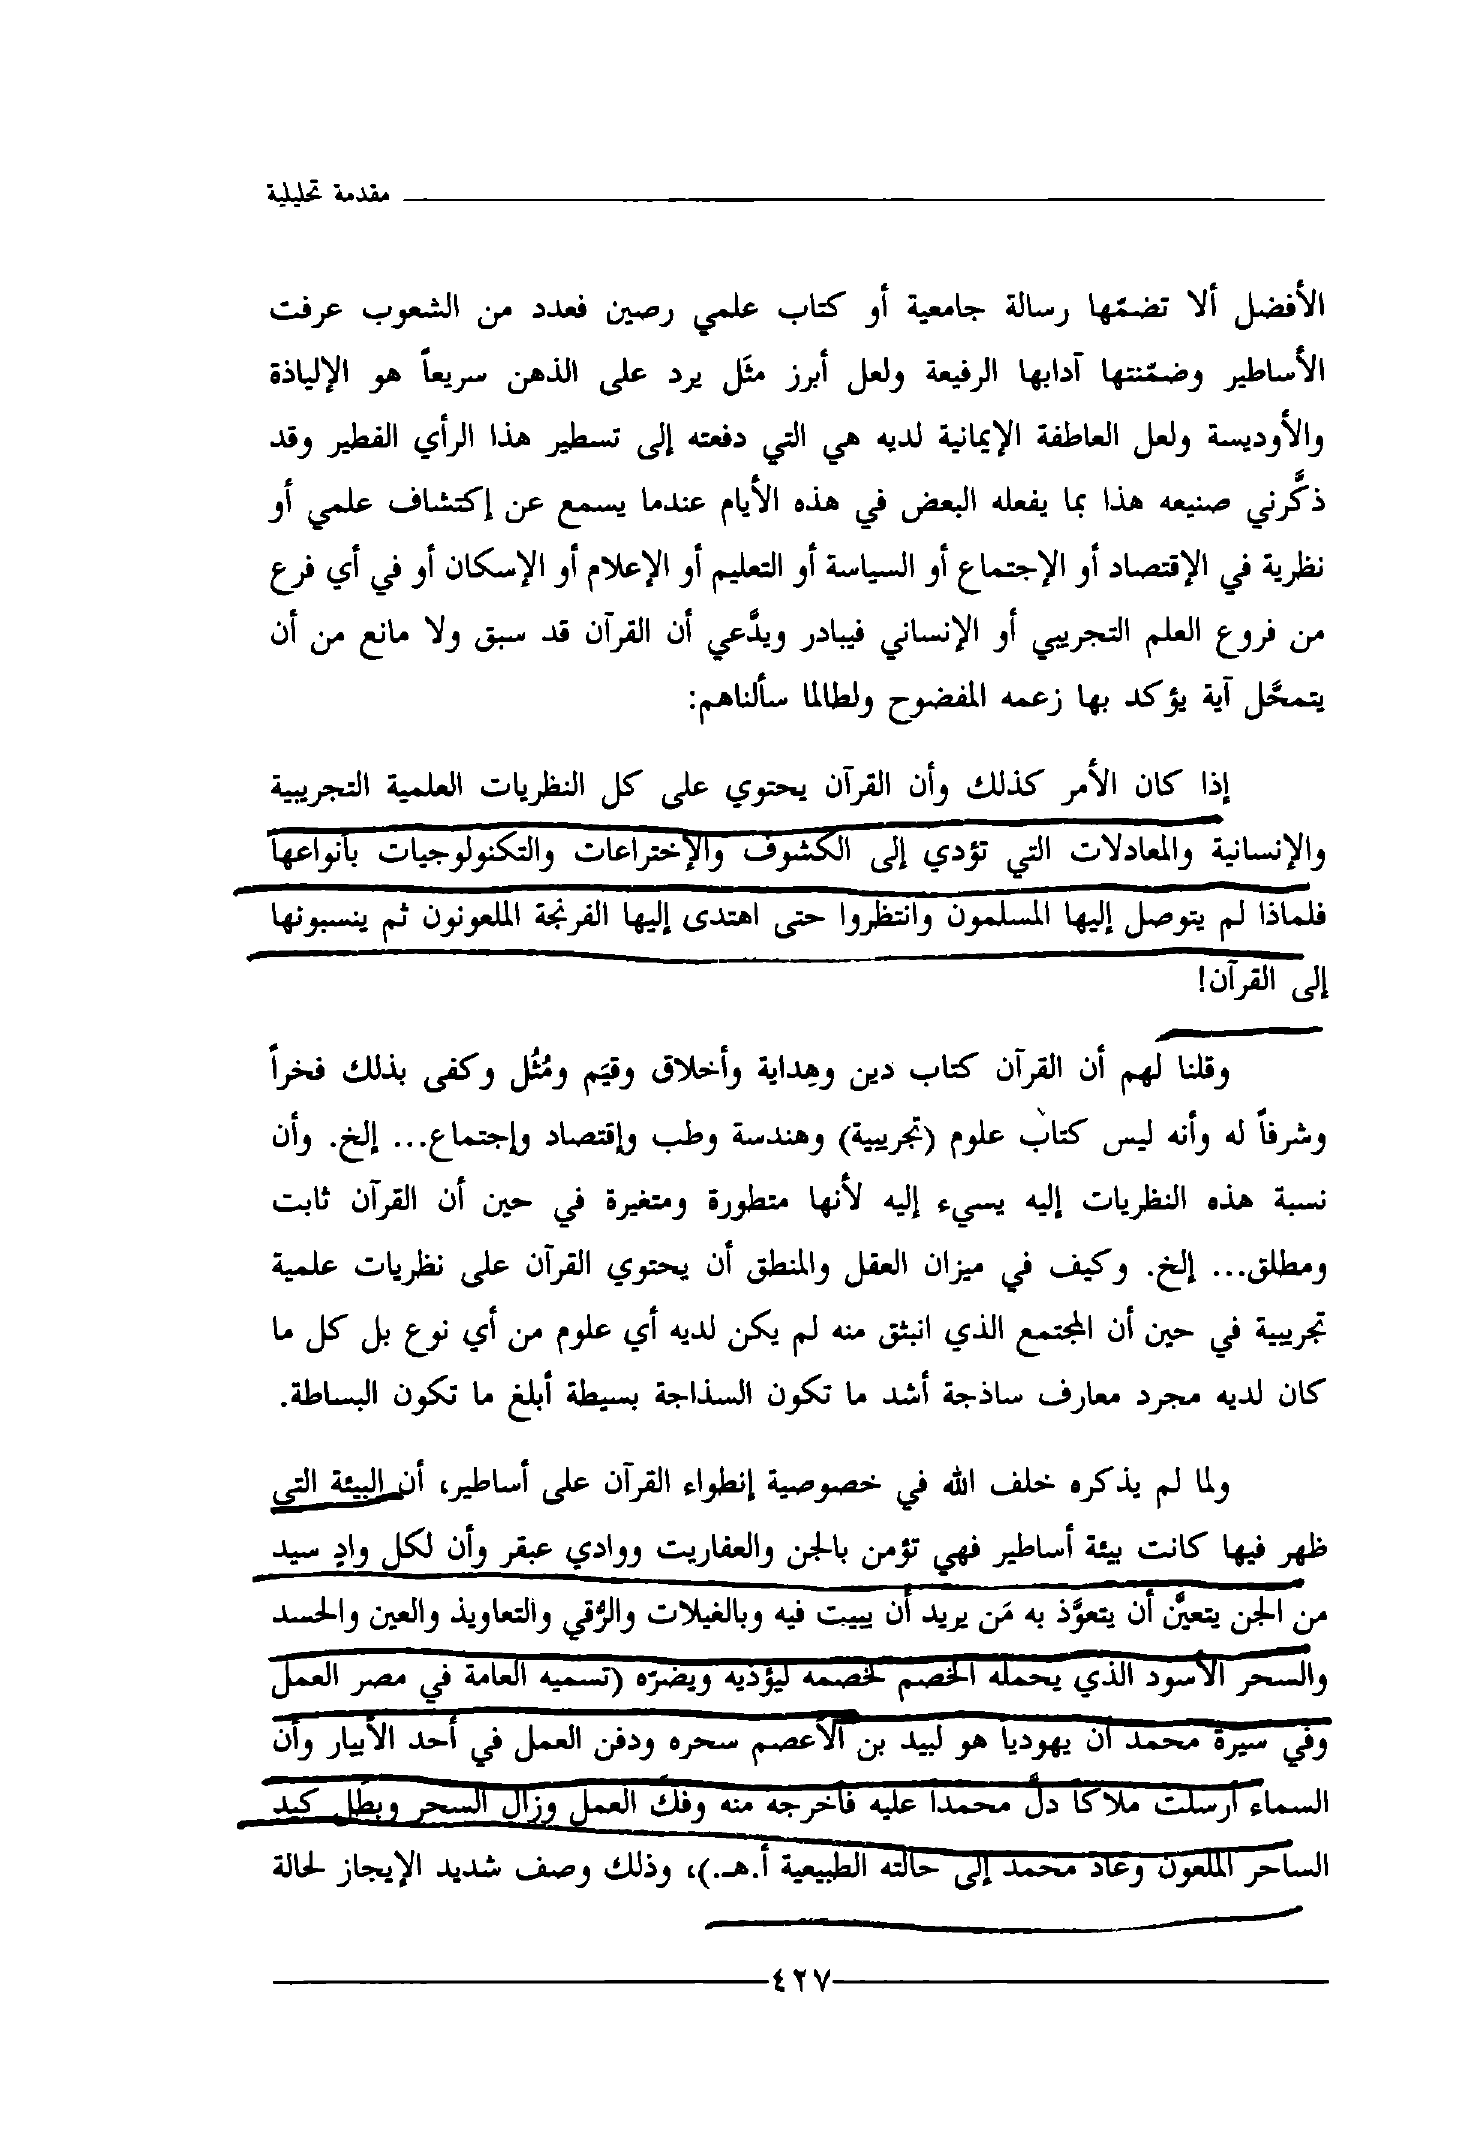 مقدمة تحليلية
الأفضل ألا تضمّها رسالة جامعية أو كتاب علمي رصين فعدد من الشعوب عرفت
الأساطير وضمّنتها آدابها الرفيعة ولعل أبرز مثَل يرد على الذهن سريعاً هو الإلياذة
والأوديسة ولعل العاطفة الإيمانية لديه هي التي دفعته إلى تسطير هذا الرأي الفطير وقد
ذكَّرني صنيعه هذا بما يفعله البعض في هذه الأيام عندما يسمع عن إكتشاف علمي أو
نظرية في الإقتصاد أو الإجتماع أو السياسة أو التعليم أو الإعلام أو الإسكان أو في أي فرع
من فروع العلم التجريبي أو الإنساني فيبادر ويدَّعي أن القرآن قد سبق ولا مانع من أن
يتمحَّل آية يؤكد بها زعمه المفضوح ولطالما سألناهم:
إذا كان الأمر كذلك وأن القرآن يحتوي على كل النظريات العلمية التجريبية
والإنسانية والمعادلات التي تؤدي إلى الكشوف والإختراعات والتكنولوجيات بأنواعها
فلماذا لم يتوصل إليها المسلمون وانتظروا حتى اهتدى إليها الفرنجة الملعونون ثم ينسبونها
إلى القرآن!
وقلنا لهم أن القرآن كتاب دين وهِداية وأخلاق وقيَم ومُثُل وكفى بذلك فخراً
وشرفاً له وأنه ليس كتاب علوم (تجريبية) وهندسة وطب وإقتصاد وإجتماع... إلخ. وأن
نسبة هذه النظريات إليه يسيء إليه لأنها متطورة ومتغيرة في حين أن القرآن ثابت
ومطلق... إلخ. وكيف في ميزان العقل والمنطق أن يحتوي القرآن على نظريات علمية
تجريبية في حين أن المجتمع الذي انبثق منه لم يكن لديه أي علوم من أي نوع بل كل ما
كان لديه مجرد معارف ساذجة أشد ما تكون السذاجة بسيطة أبلغ ما تكون البساطة.
ولما لم يذكره خلف الله في خصوصية إنطواء القرآن على أساطير، أن البيئة التي
ظهر فيها كانت بيئة أساطير فهي تؤمن بالجن والعفاريت ووادي عبقر وأن لكل وادٍ سيد
من الجن يتعيَّن أن يتعوَّذ به مَن يريد أن يبيت فيه وبالغيلات والرُّقي والتعاويذ والعين والحسد
والسحر الأسود الذي يحمله الخصم لخصمه ليؤذيه ويضرّه (تسميه العامة في مصر العمل
وفي سيرة محمد أن يهودياً هو لبيد بن الأعصم سحره ودفن العمل في أحد الأبيار وأن
السماء أرسلت ملاكاً دلَّ محمداً عليه فأخرجه منه وفكَّ العمل وزال السحر وبطَل كيد
الساحر الملعون وعاد محمد إلى حالته الطبيعية أ.هـ.)، وذلك وصف شديد الإيجاز لحالة
٤٢٧